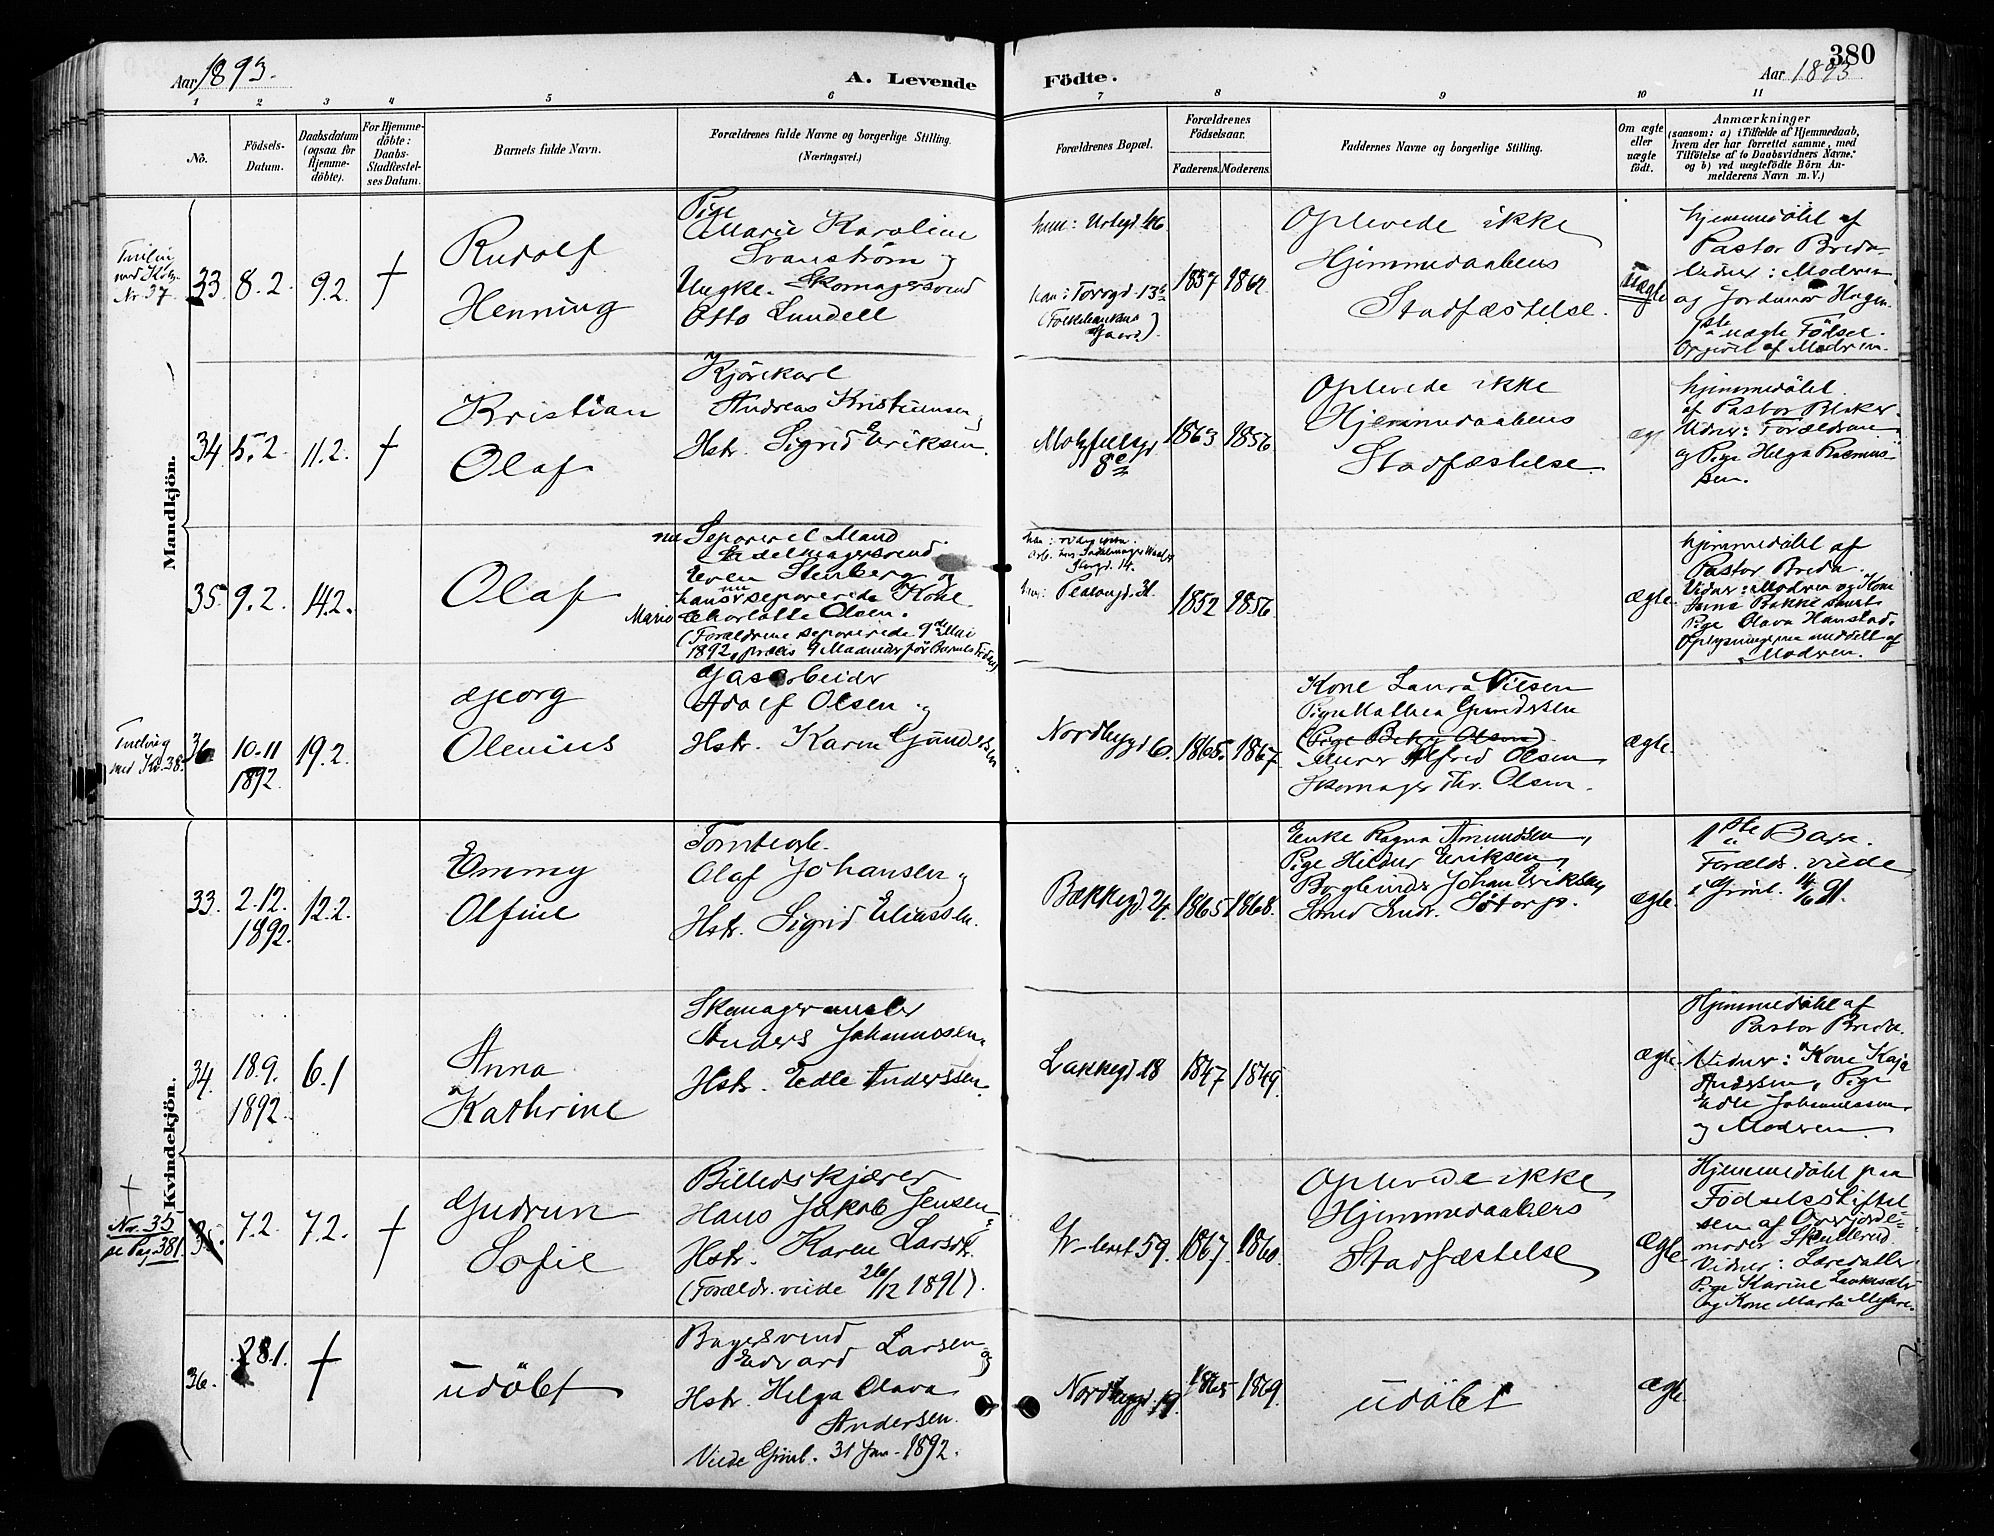 380
Aar 1893.
A. Levende
Födte.
Aar 1893
1 2 3 4 5 6 7 8 9 10 11
No.
Födsels-
Datum.
Daabsdatum
(ogsaa for
Hjemme-
döbte).
For Hjemme-
döbte:
Daabs-
Stadfæstel-
ses Datum.
Barnets fulde Navn.
Forældrenes fulde Navne og borgerlige Stilling.
(Næringsvei.)
Forældrenes Bopæl.
Forældrenes
Födselsaar.
Faderens. Moderens.
Faddernes Navne og borgerlige Stilling.
Om ægte
eller
uægte
födt.
Anmærkninger
(saasom: a) i Tilfælde af Hjemmedaab,
hvem der har forrettet samme, med
Tilföielse af to Daabsvidners Navne,
og b) ved uægtefödte Börn An-
melderens Navn m. V.)
Mandkjön.
Tvilling
med Kv.
Nr 37
33
8.2.
9.2.
†
Rudolf
Henning
Pige
Marie Karoline
Svanström og
Ungk. Skomagersvend
Otto Lundell
hun: Urtegd 46
han: Torvgd. 13
1857
1862.
Oplevede ikke
Hjemmedaabens
Stadfæstelse.
uægte
hjemmedöbt af
Pastor Breda.
Vidner: Moderen
og Jordmor Hagen.
1ste uægte Födsel.
Opgivet af Moderen.
34
5.2.
11.2.
†
Kristian
Olaf
Kjörekarl
Andreas Kristiansen og
Hstr. Sigrid Eriksen.
Motzfeldtsgd
8
1863
1856.
Oplevede ikke
Hjemmedaabens
Stadfæstelse
ægt
hjemmedöbt.
af Pastor Blaker.
Vidner: Forældrene
og Pige Helga Rasmus-
sen.
35.
9.2.
14.2.
Olaf
nu Separeret Mand
Sadelmagersvend
Even Stenberg og
hans nu separerede Kone
Marie Charlotte Olsen.
(Forældrene separerede 9de Mai
1892, præcis 9 Maaneder för Barnets Födsel)
hun: 31
1852
1856.
ægte.
hjemmedöbt af
Pastor Breda.
Vidner: Moderen og Kone
Bakke samt
Pige Olava Hanstad.
Oplysningerne meddelt af
Moderen.
Tvilling
med Kv. 38.
36
10.11
1892.
19.2.
Georg
Olenius
Gasarbeider
Adolf Olsen og
Hstr. Karen Gundersen
Nordbygd 6.
1865.
1867.
Kone Laura Nilsen
Pige Mathea Gundersen
(Pige Betzy Olsen)
Murer Alfred Olsen
Skomager Olsen.
ægte.
Kvindekjön.
33.
2.12.
1892.
12.2.
Emmy
Olfine
Tomtearb.
Olaf Johansen og
Hstr. Sigrid Eliassen.
Bakkegd. 24.
1865
1868.
Enke Ragna Amundsen,
Pige Hildur Eriksen,
Bogbinder Johan Eriksen,
ægte.
1ste Barn.
Foræld. viede
i Grönl. 14/6 91.
34.
18.9.
1892.
6.1
Anna
Kathrine
Skomagermester
Anders Johannesen
Hstr. Edle Anderssen.
Lakkegd 18
1847
1849.
ægte.
Hjemmedöbt af
Pastor Breda.
Vidner: Kone Kaja
Andersen, Pige
Edle Johannessen
og Moderen.
†
No. 35
se Pag. 381.
35.
7.2.
7.2.
†
Gudrun
Sofie
Billedskjærer
Hans Jakob Jensen
Hstr. Karen Larsdtr.
(Foræld. viede 26/12 1891).
59.
1867.
1860.
Oplevede ikke
Hjemmedaabens
Stadfæstelse
ægte
Hjemmedöbt paa
Födselsstiftel-
sen af Overjorde-
moder Skullerud.
Vidner:
Pige Karine
og Kone Marta Myhre.
36.
28.1.
†
udöbt
Bagersvend
Edvard Larsen og
Hstr. Helga Olava
Andersen.
Viede Grönl. 31 Jan. 1892.
Nordbygd. 19.
1865
1869.
udöbt
ægte.